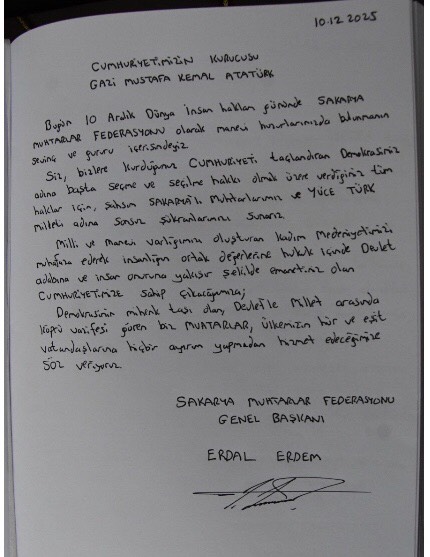 10.12.2025
CUMHURİYETİMİZİN KURUCUSU
GAZİ MUSTAFA KEMAL ATATÜRK
Bugün 10 Aralık Dünya İnsan hakları gününde SAKARYA
MUHTARLAR FEDERASYONU olarak manevi huzurlarınızda bulunmanın
sevinç ve gururu içerisindeyiz
Siz, bizlere kurduğunuz CUMHURİYETİ taçlandıran Demokrasimiz
adına başta seçme ve seçilme hakkı olmak üzere verdiğiniz tüm
haklar için, şahsım SAKARYA'lı Muhtarlarımız ve YÜCE TÜRK
milleti adına sonsuz şükranlarımızı sunarız.
Milli ve Manevi varlığımızı oluşturan kadim Medeniyetimizi
muhafaza ederek insanlığın ortak değerlerine hukuk içinde Devlet
adabına ve insan onuruna yakışır şekilde emanetiniz olan
CUMHURİYETİMİZE sahip çıkacağımıza;
Demokrasinin mihenk taşı olan, Devletle Millet arasında
köprü vazifesi gören biz MUHTARLAR, ülkemizin hür ve eşit
vatandaşlarına hiçbir ayırım yapmadan hizmet edeceğimize
SÖZ veriyoruz.
SAKARYA MUHTARLAR FEDERASYONU
GENEL BAŞKANI
ERDAL ERDEM